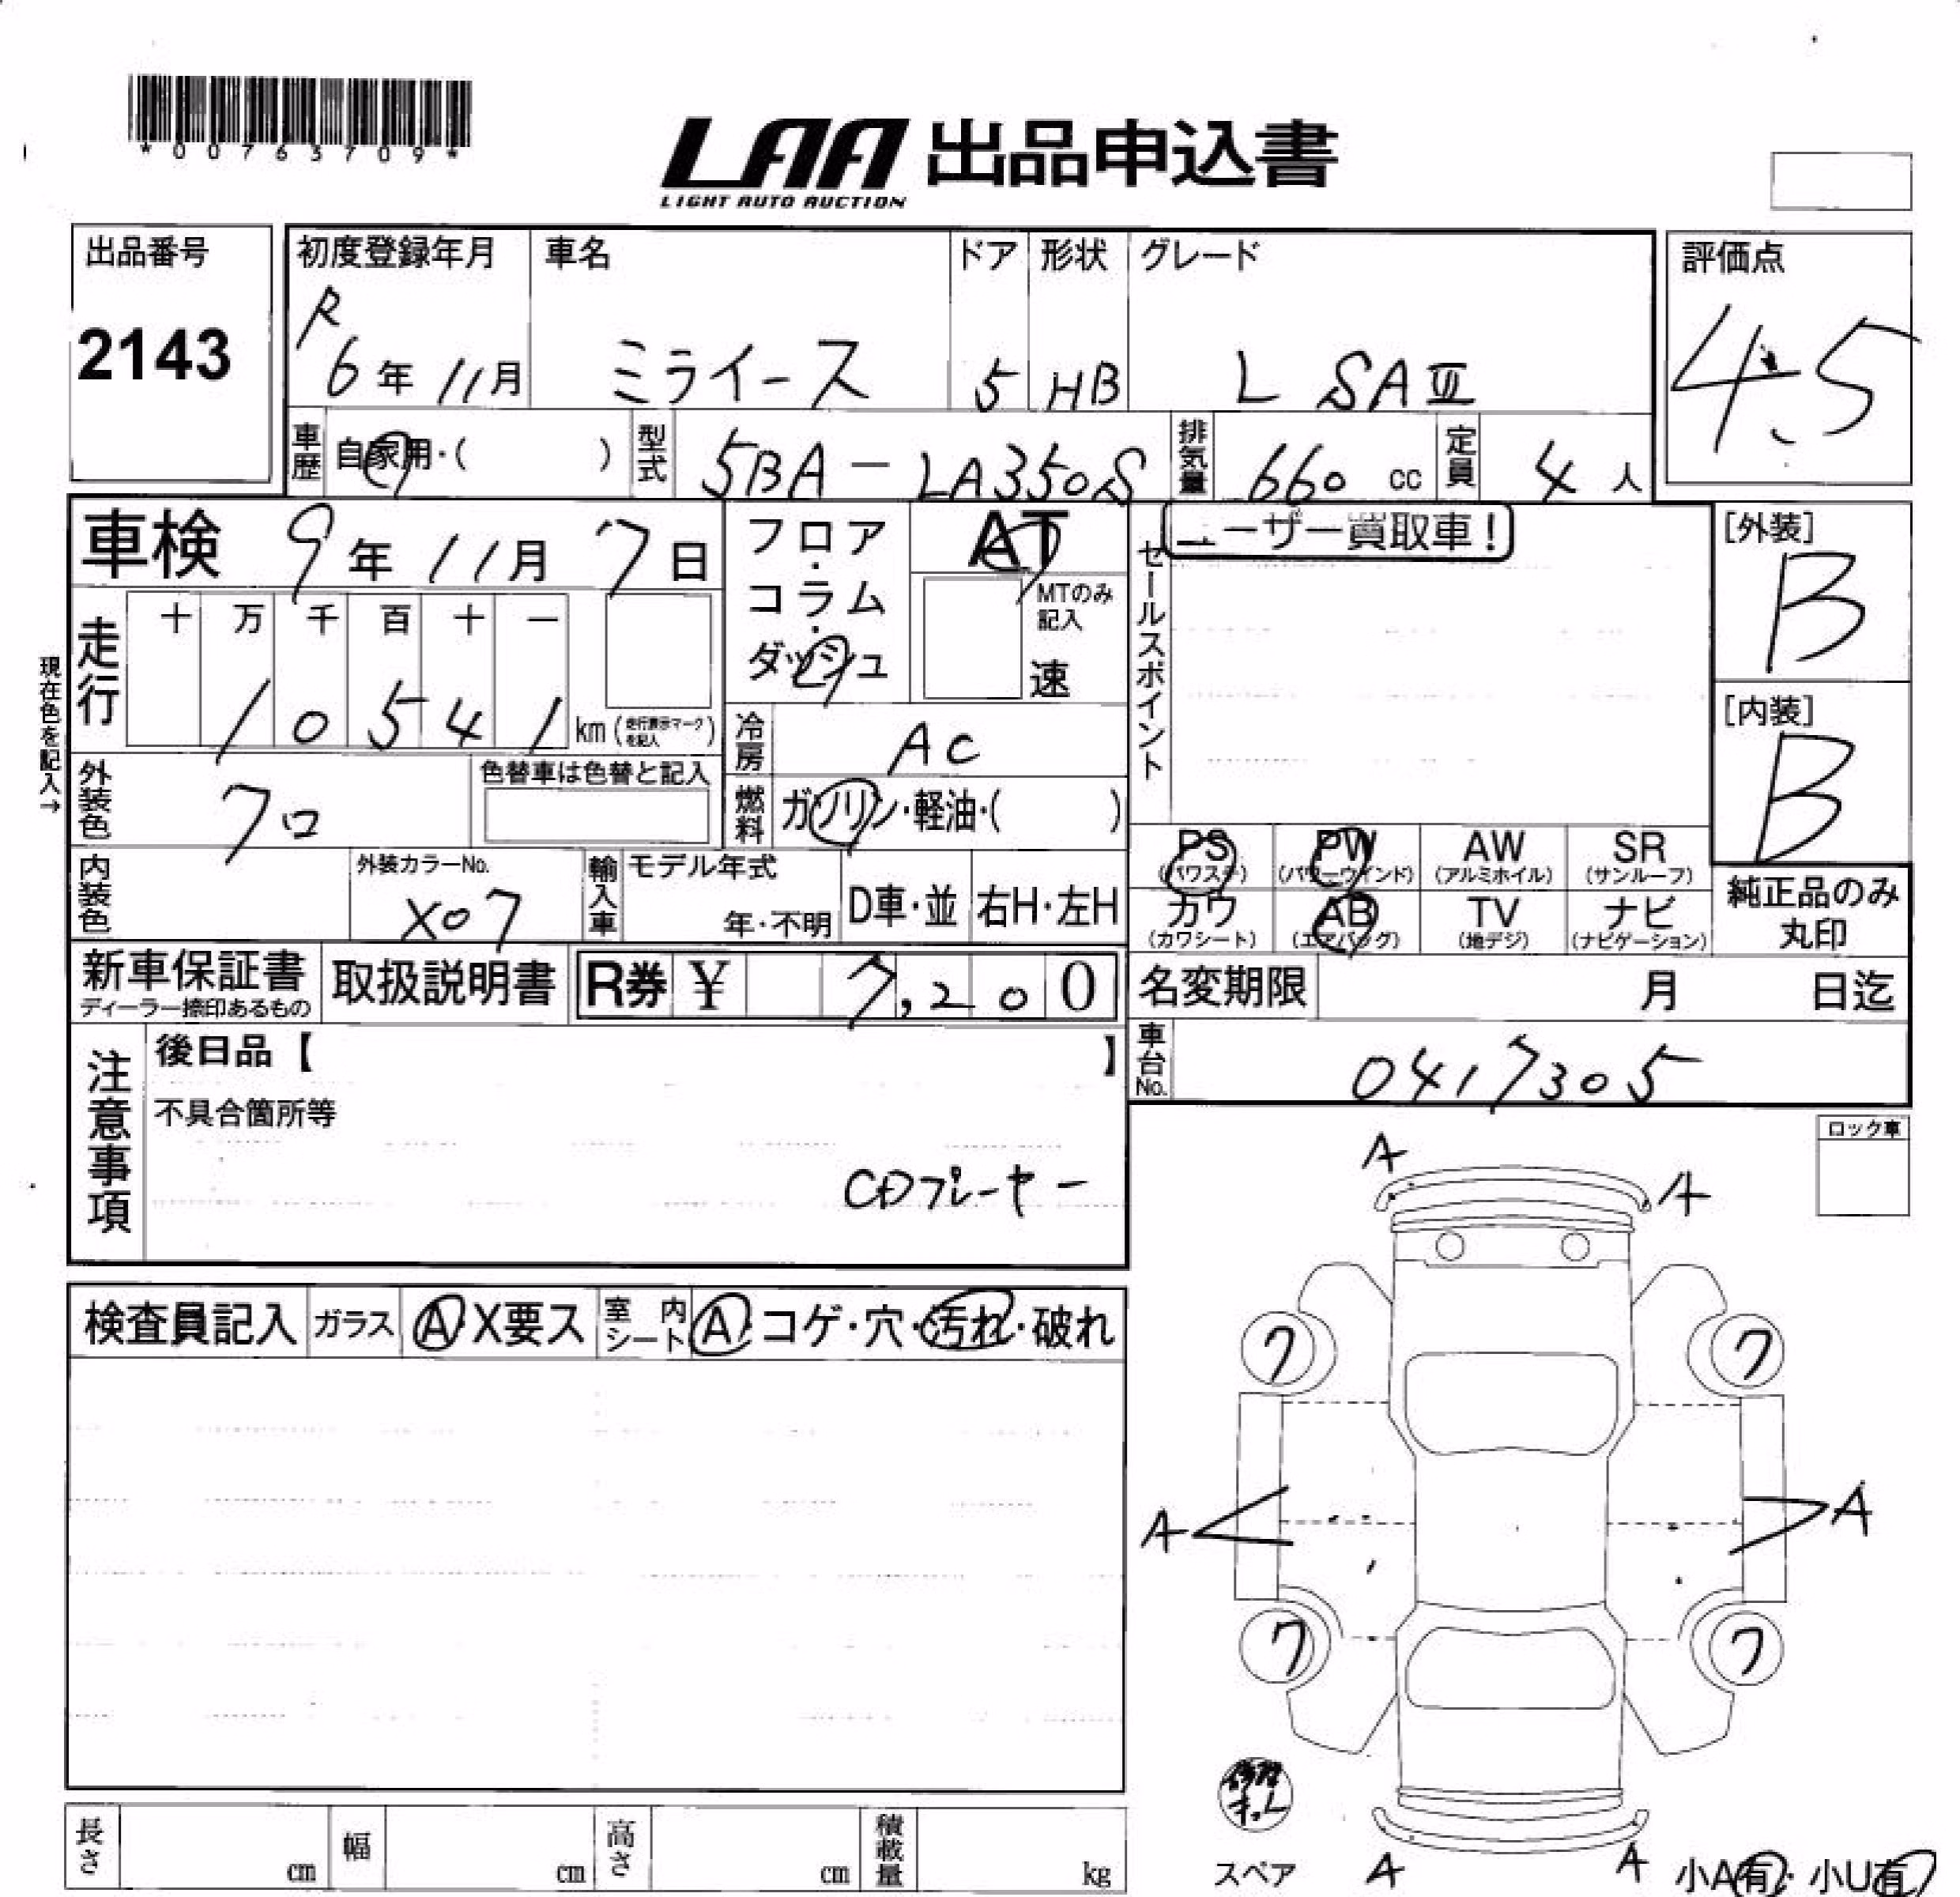 *00763709*
LAA 出品申込書
LIGHT AUTO AUCTION
出品番号
2143
初度登録年月
R
6年11月
車名
ミライース
ドア
5
形状
HB
グレード
L SAⅢ
評価点
4.5
車歴
自家用・( )
型式
5BA-LA350S
排気量
660 cc
定員
4人
車検
9年11月7日
フロア・コラム・ダッシュ
AT
MTのみ記入
速
セールスポイント
ユーザー買取車!
[外装]
B
[内装]
B
現在色を記入→
走行
十 万 千 百 十 一
1 0 5 4 1
km(走行表示マークを記入)
冷房
AC
外装色
クロ
色替車は色替と記入
燃料
ガソリン・軽油・( )
内装色
外装カラーNo.
X07
輸入車
モデル年式
年・不明
D車・並
右H・左H
PS
(パワステ)
PW
(パワーウインド)
AW
(アルミホイル)
SR
(サンルーフ)
カワ
(カワシート)
AB
(エアバッグ)
TV
(地デジ)
ナビ
(ナビゲーション)
純正品のみ
丸印
新車保証書
ディーラー捺印あるもの
取扱説明書
R券 ¥ 7,200
名変期限
月 日迄
車台No.
0417305
注意事項
後日品【 】
不具合箇所等
CDプレーヤー
ロック車
検査員記入
ガラス
A・X要ス
室内シート
A・コゲ・穴・汚れ・破れ
A
A
7
7
A
A
7
7
修理キット
スペア
A
A
小A有・小U有
長さ
cm
幅
cm
高さ
cm
積載量
kg